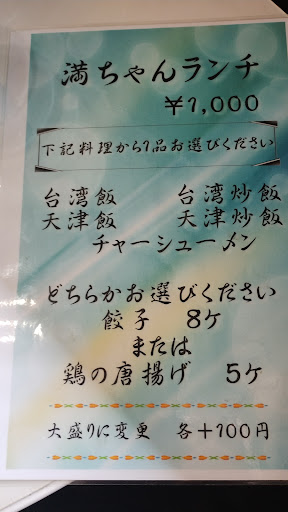 満ちゃんランチ
￥1,000
下記料理から1品お選びください
台湾飯 台湾炒飯
天津飯 天津炒飯
チャーシューメン
どちらかお選びください
餃子 8ケ
または
鶏の唐揚げ 5ケ
大盛りに変更 各＋100円